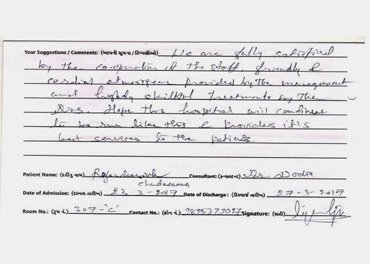 Your Suggestions / Comments: We are fully satisfied
by the cooperation of the staff, friendly &
cordial atmosphere provided by the management
and highly skillful treatments by the
Drs. Hope this hospital will continue
to be run like this & provides it's
best services to the patients.
Patient Name: Rajendrasinh Chudasama Consultant: Dr. Dodia
Date of Admission: 22-3-2017 Date of Discharge: 27-3-2017
Room No.: 207-'C' Contact No.: Signature: